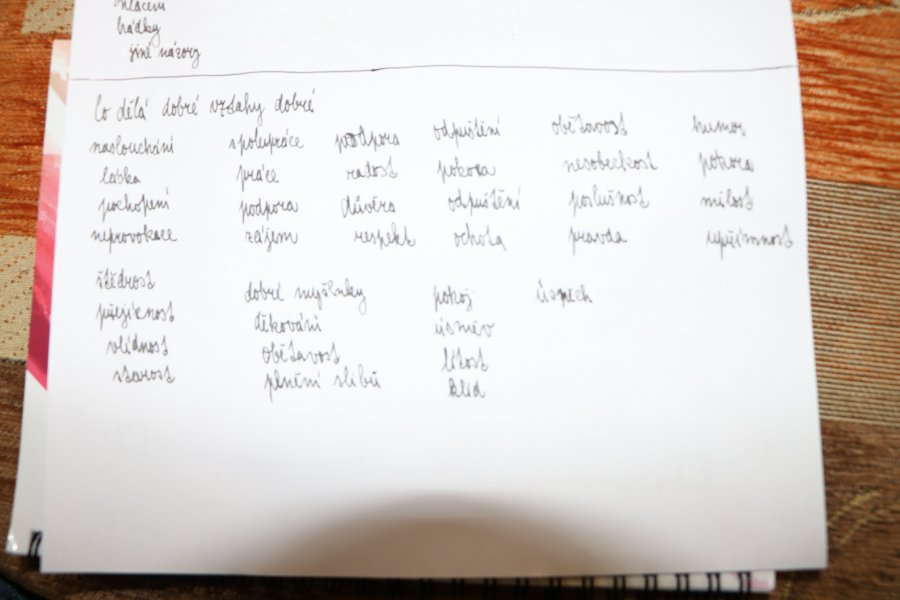 mlácení
hádky
jiné názory
Co dělá dobré vztahy dobré
naslouchání spolupráce podpora odpuštění obětavost humor
láska práce radost pokora nesobeckost pokora
pochopení podpora důvěra odpuštění poslušnost milost
neprovokace zájem respekt ochota pravda upřímnost
štědrost dobré myšlenky pokoj úsměch
přejícnost děkování úsměv
vlídnost obětavost lítost
starost plnění slibů klid